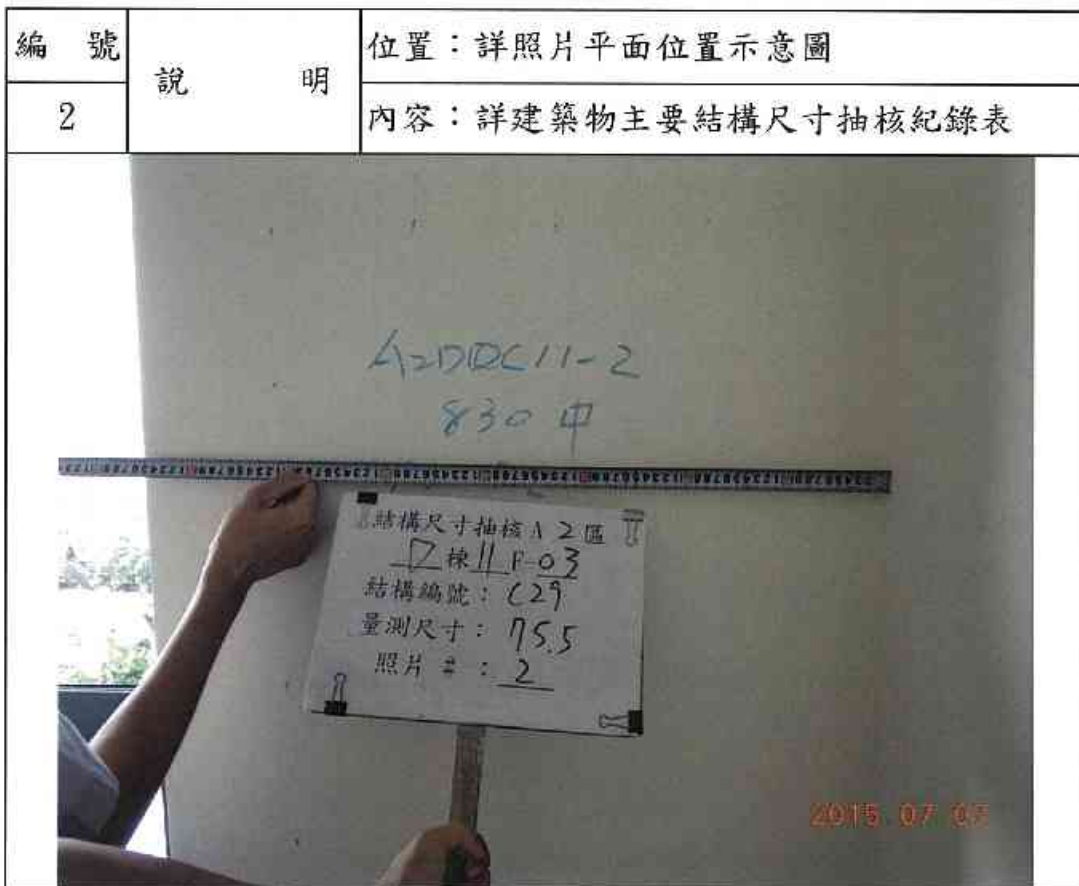 編 號
2
說 明
位置：詳照片平面位置示意圖
內容：詳建築物主要結構尺寸抽核紀錄表
830 中
結構尺寸抽核A 2 區
D 棟 11 F-03
結構編號： C29
量測尺寸： 75.5
照片 # ： 2
2015 07 07